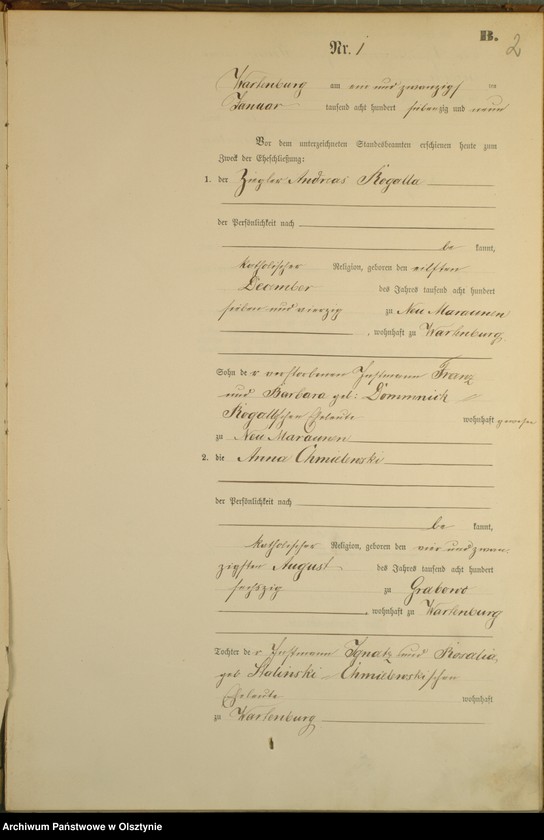 B.
2
Nr. 1
Wartenburg am ein und zwanzigsten
Januar tausend acht hundert siebenzig und neun
Vor dem unterzeichneten Standesbeamten erschienen heute zum
Zweck der Eheschließung:
1. der Ziegler Andreas Rogalla
der Persönlichkeit nach
be kannt,
katholischer Religion, geboren den eilften
December des Jahres tausend acht hundert
sieben und vierzig zu Neu Maraunen
, wohnhaft zu Wartenburg
Sohn der verstorbenen Instmann Franz
und Barbara geb: Dommnich
Rogallschen Eheleute wohnhaft gewesen
zu Neu Maraunen
2. die Anna Chmielewski
der Persönlichkeit nach
be kannt,
katholischer Religion, geboren den vier und zwan-
zigsten August des Jahres tausend acht hundert
sechszig zu Grabowo
, wohnhaft zu Wartenburg
Tochter der Instmann Ignatz und Rosalia,
geb Stalinski Chmielewskischen
Eheleute wohnhaft
zu Wartenburg
Archiwum Państwowe w Olsztynie